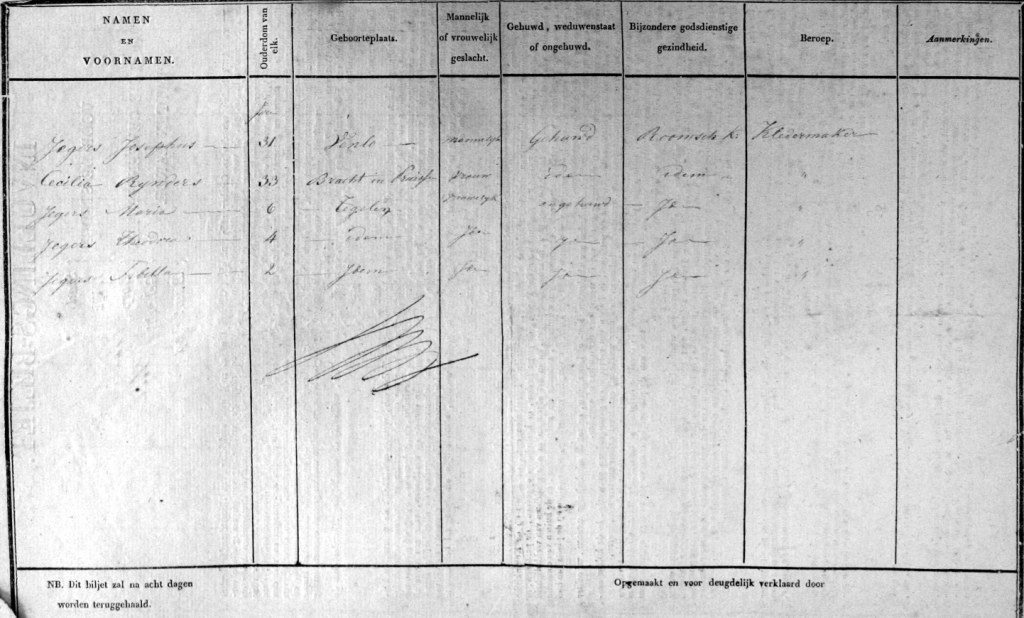 NAMEN EN VOORNAMEN. Ouderdom van elk. Geboorteplaats. Mannelijk of vrouwelijk geslacht. Gehuwd, weduwenstaat of ongehuwd. Bijzondere godsdienstige gezindheid. Beroep. Aanmerkingen.
Jegers Josephus 31 Venlo mannelyk Gehuwd Roomsch K: Kledermaker
Cecilia Rynders 33 Bracht in vrouw edem
Jegers Maria 6 Tegelen vrouwelyk ongehuwd
Jegers Theodor 4 idem
Jegers 2 Idem
NB. Dit biljet zal na acht dagen
worden teruggehaald.
Opgemaakt en voor deugdelijk verklaard door